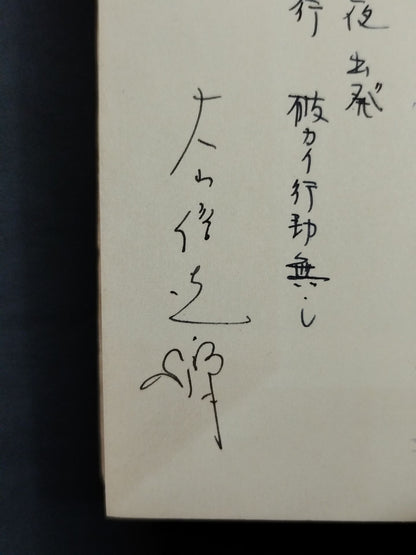 夜 出発
行 破カイ行動無し
大山倍達